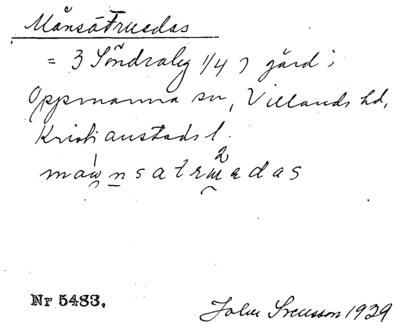 MånsaTruedas
= 3 Söndraby 1/4 gård i
Oppmanna sn, Villands hd,
Kristianstads l.
Nr 5483.
John Svensson 1929